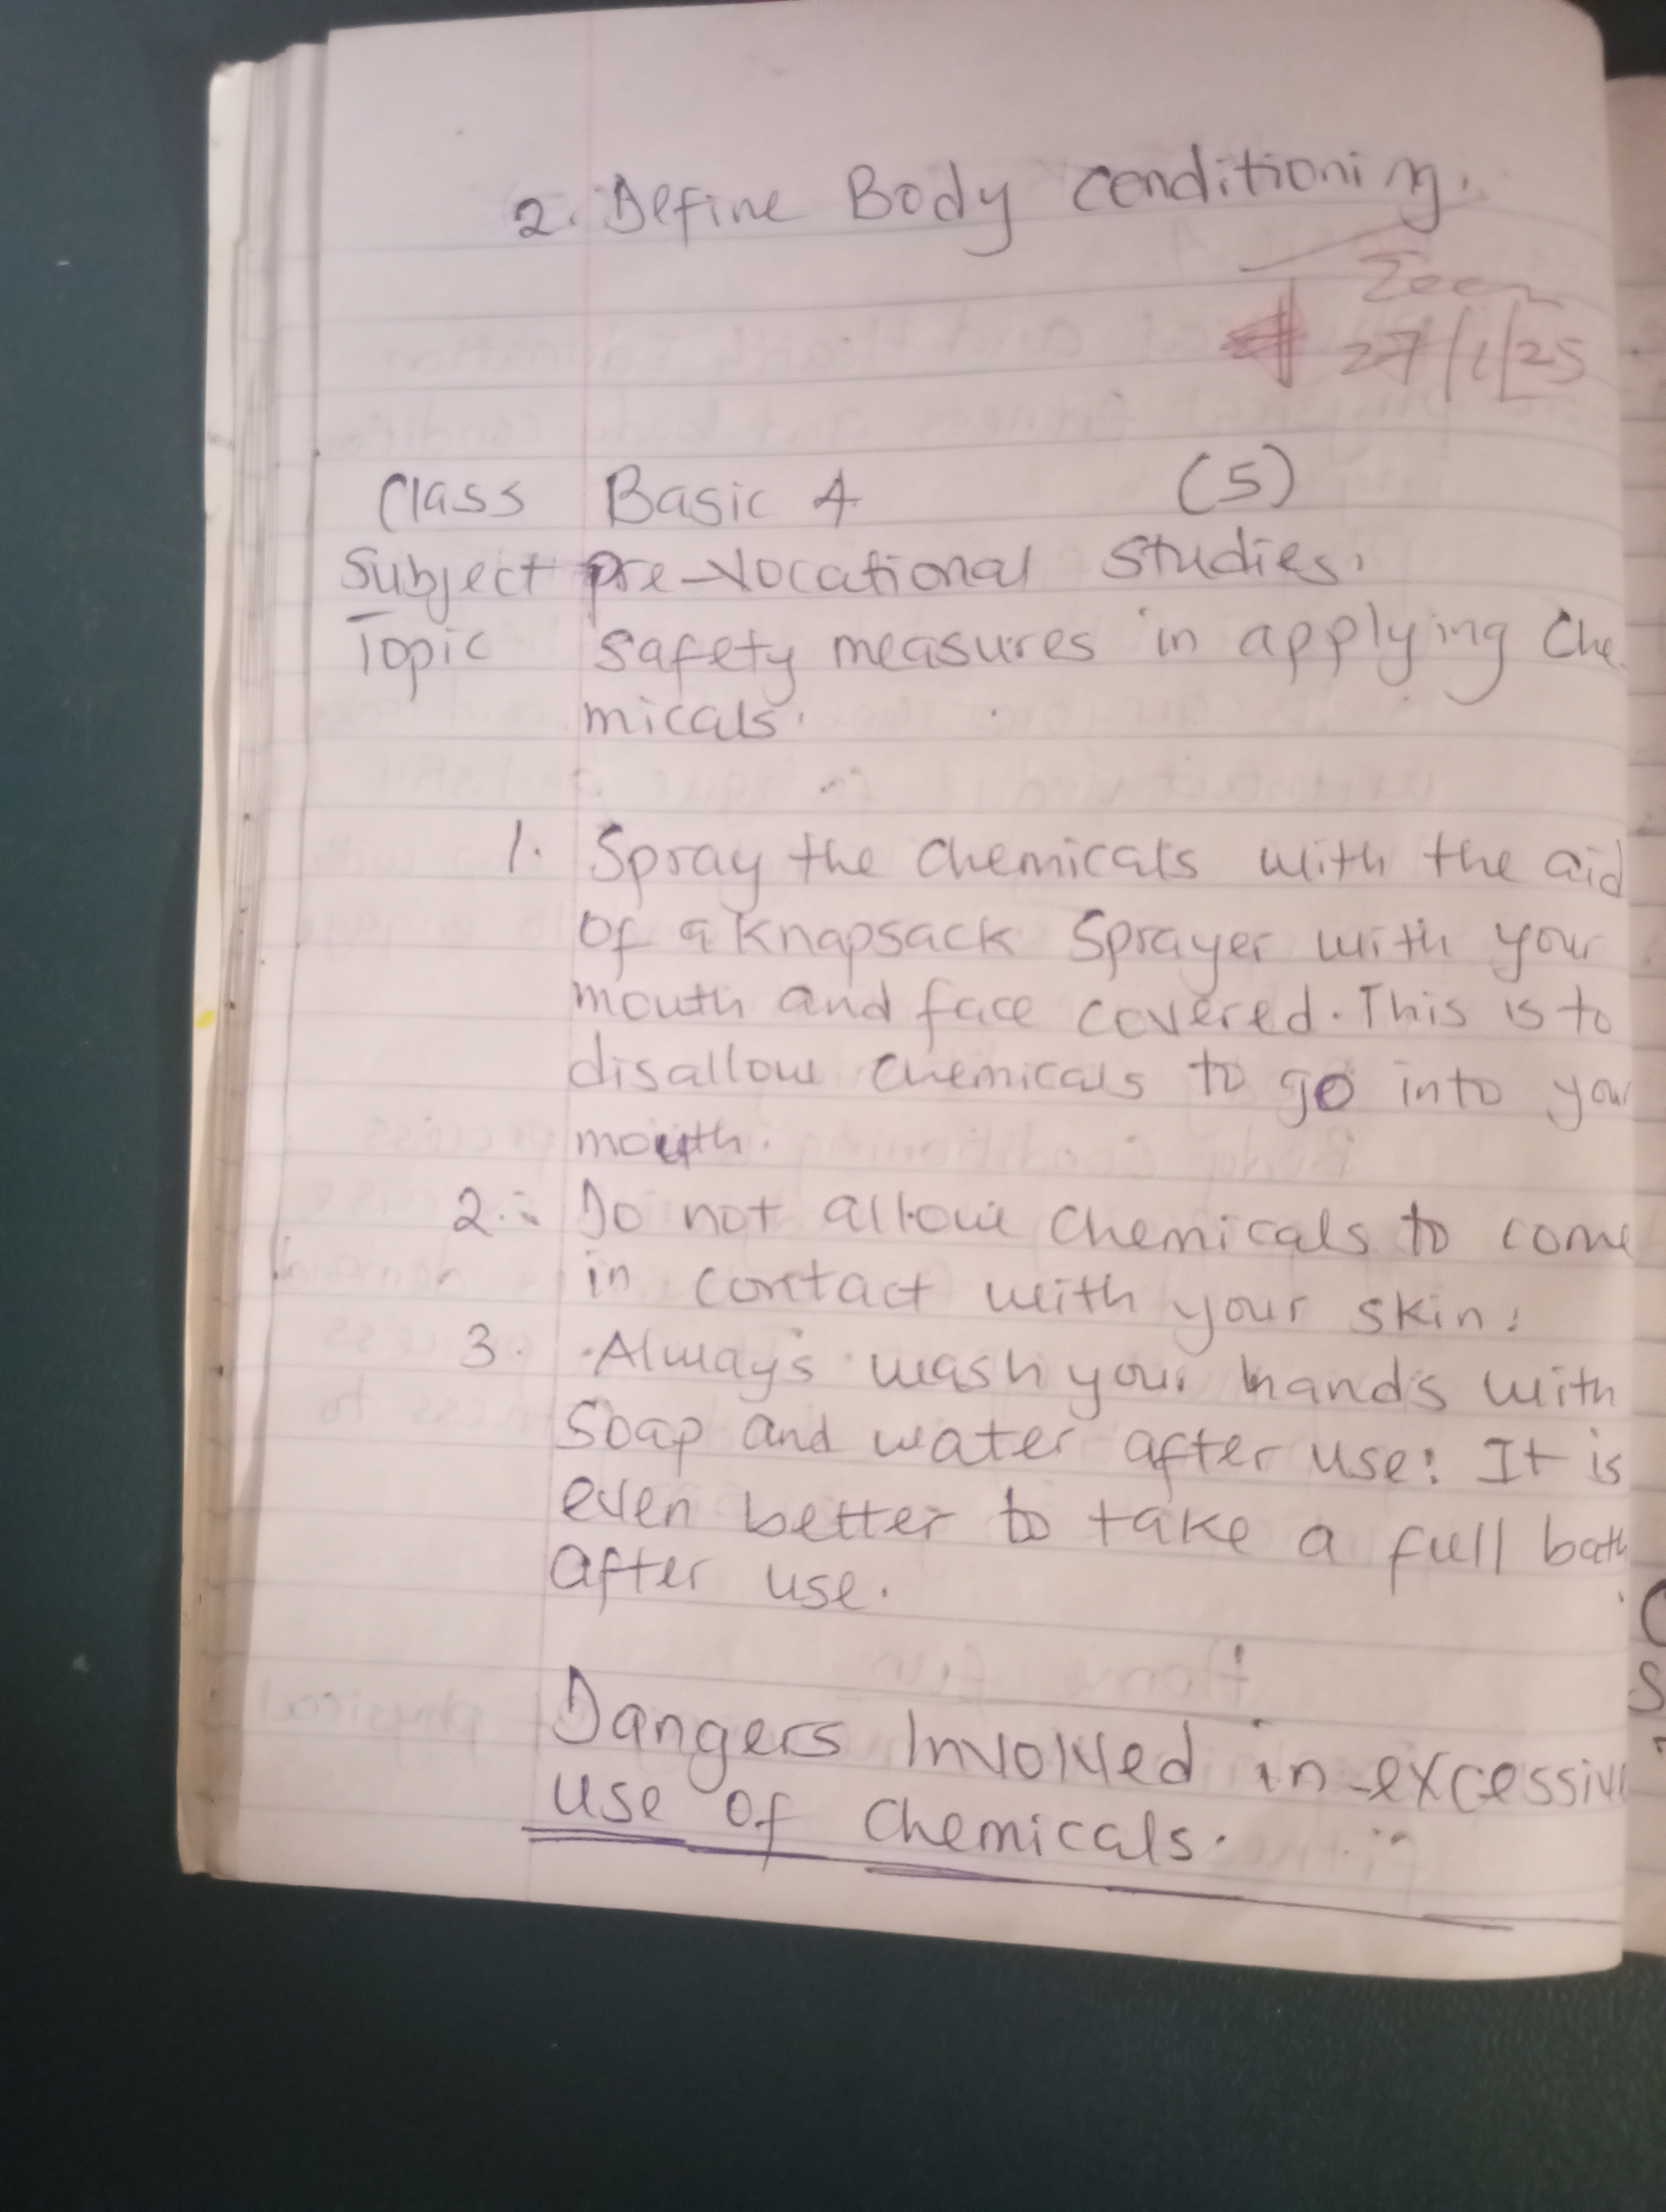 2. Define Body conditioning.
27/1/25
Class Basic 4 (5)
Subject pre-vocational studies.
Topic safety measures in applying Che
micals.
1. Spray the chemicals with the aid
of a knapsack sprayer with your
mouth and face covered. This is to
disallow chemicals to go into your
mouth.
2. Do not allow chemicals to come
in contact with your skin.
3. Always wash your hands with
soap and water after use: It is
even better to take a full bath
after use.
Dangers Involved in excessive
use of chemicals.